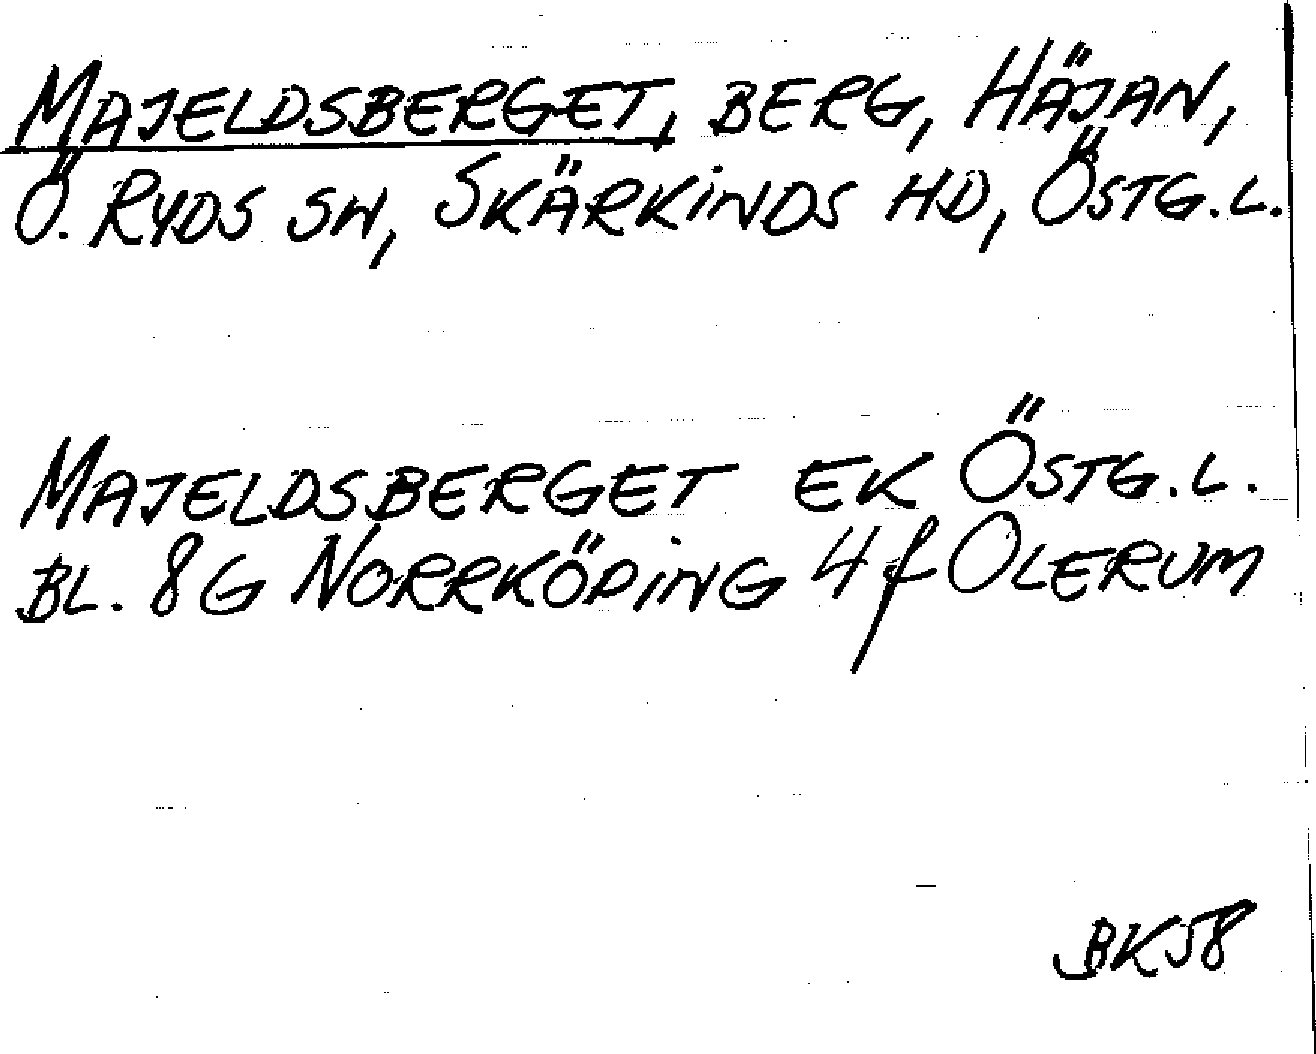 MAJELDSBERGET, BERG, HÄJAN,
Ö. RYDS SN, SKÄRKINDS HD, ÖSTG.L.
MAJELDSBERGET EK ÖSTG.L.
BL. 8G NORRKÖPING 4f OLERUM
BK58